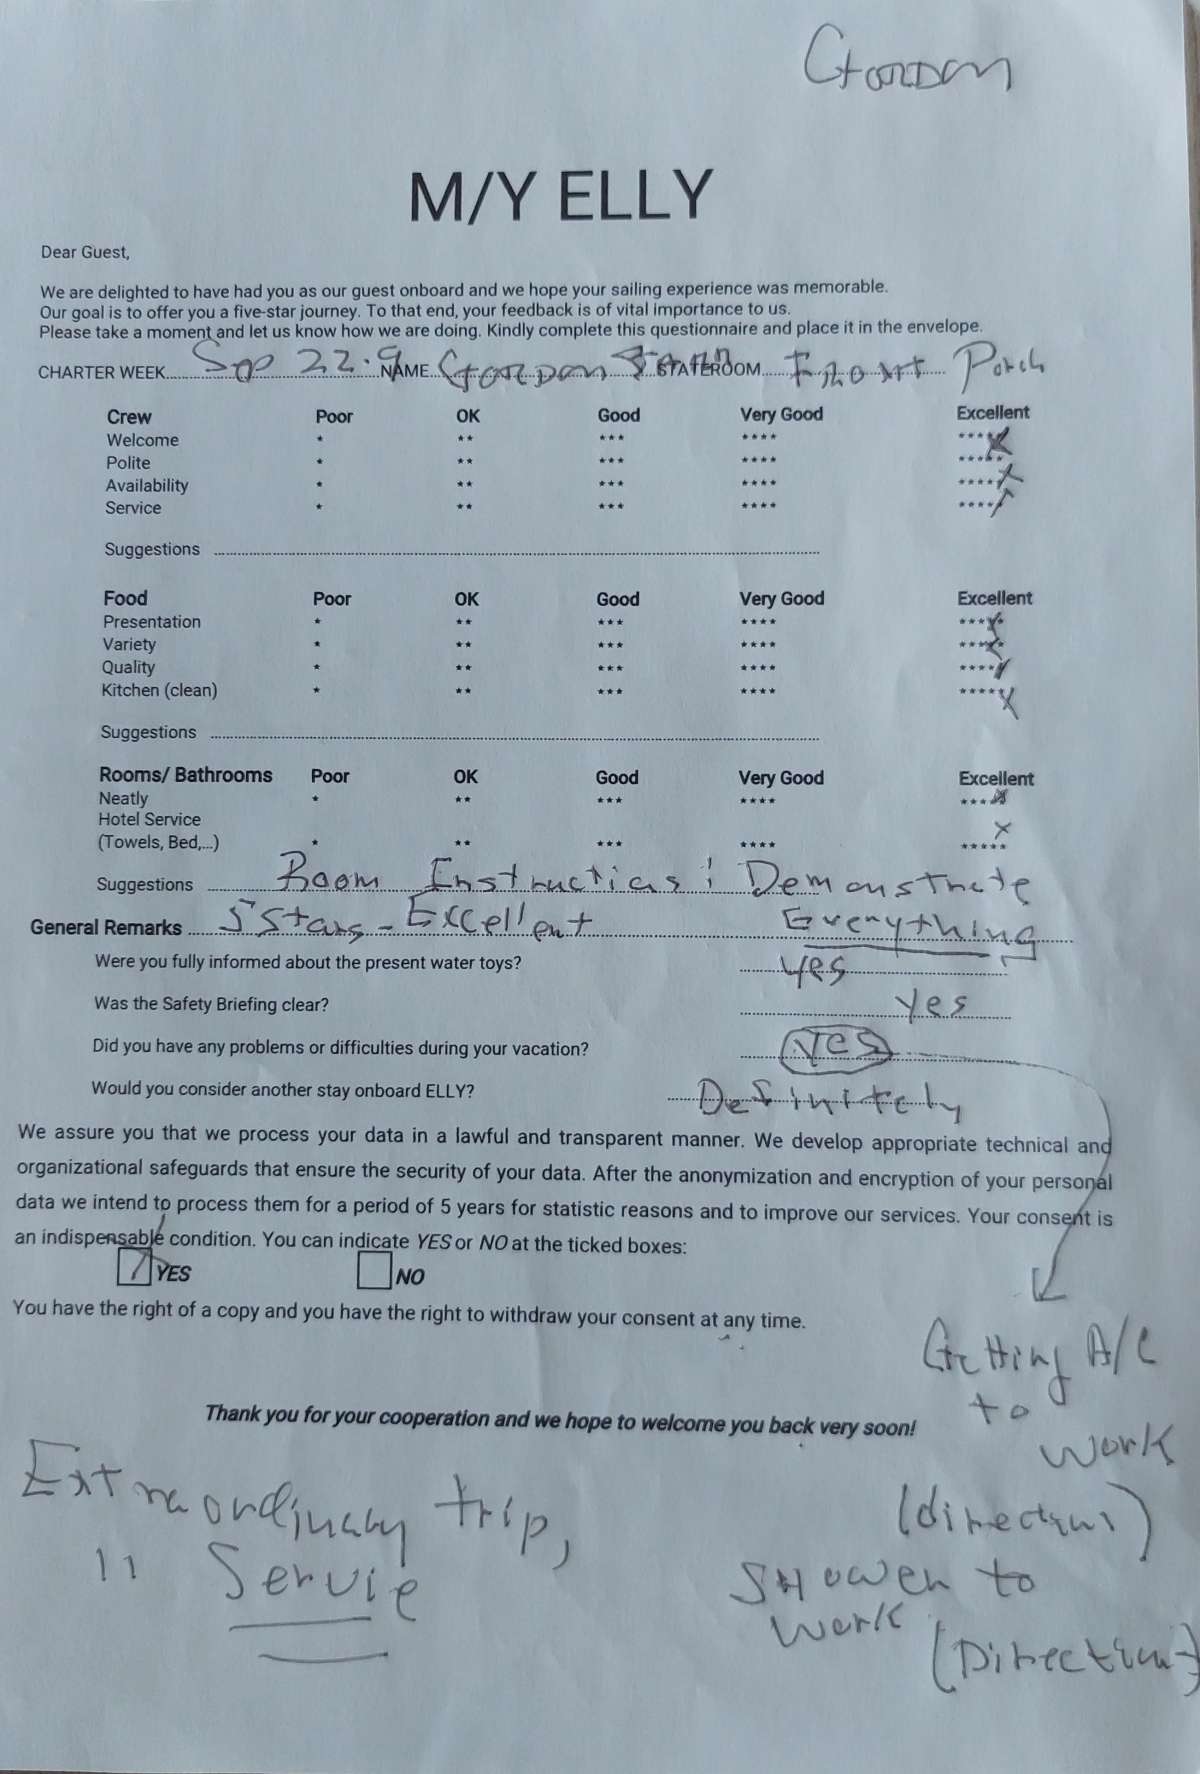 Gordon
M/Y ELLY
Dear Guest,
We are delighted to have had you as our guest onboard and we hope your sailing experience was memorable.
Our goal is to offer you a five-star journey. To that end, your feedback is of vital importance to us.
Please take a moment and let us know how we are doing. Kindly complete this questionnaire and place it in the envelope.
CHARTER WEEK Sep 22 NAME Gordon STATEROOM Front Porch
Crew Poor OK Good Very Good Excellent
Welcome * ** *** **** *****
Polite * ** *** **** *****
Availability * ** *** **** *****
Service * ** *** **** *****
Suggestions
Food Poor OK Good Very Good Excellent
Presentation * ** *** **** *****
Variety * ** *** **** *****
Quality * ** *** **** *****
Kitchen (clean) * ** *** **** *****
Suggestions
Rooms/ Bathrooms Poor OK Good Very Good Excellent
Neatly * ** *** **** *****
Hotel Service
(Towels, Bed,...) * ** *** **** *****
Suggestions Room Instructions: Demonstrate
General Remarks 5 Stars - Excellent Everything
Were you fully informed about the present water toys? yes
Was the Safety Briefing clear? yes
Did you have any problems or difficulties during your vacation? yes
Would you consider another stay onboard ELLY? Definitely
We assure you that we process your data in a lawful and transparent manner. We develop appropriate technical and
organizational safeguards that ensure the security of your data. After the anonymization and encryption of your personal
data we intend to process them for a period of 5 years for statistic reasons and to improve our services. Your consent is
an indispensable condition. You can indicate YES or NO at the ticked boxes:
YES NO
You have the right of a copy and you have the right to withdraw your consent at any time.
Getting A/C
to
work
(directions)
Thank you for your cooperation and we hope to welcome you back very soon!
Extraordinary trip,
" Servie
Shower to
work
(Directions)